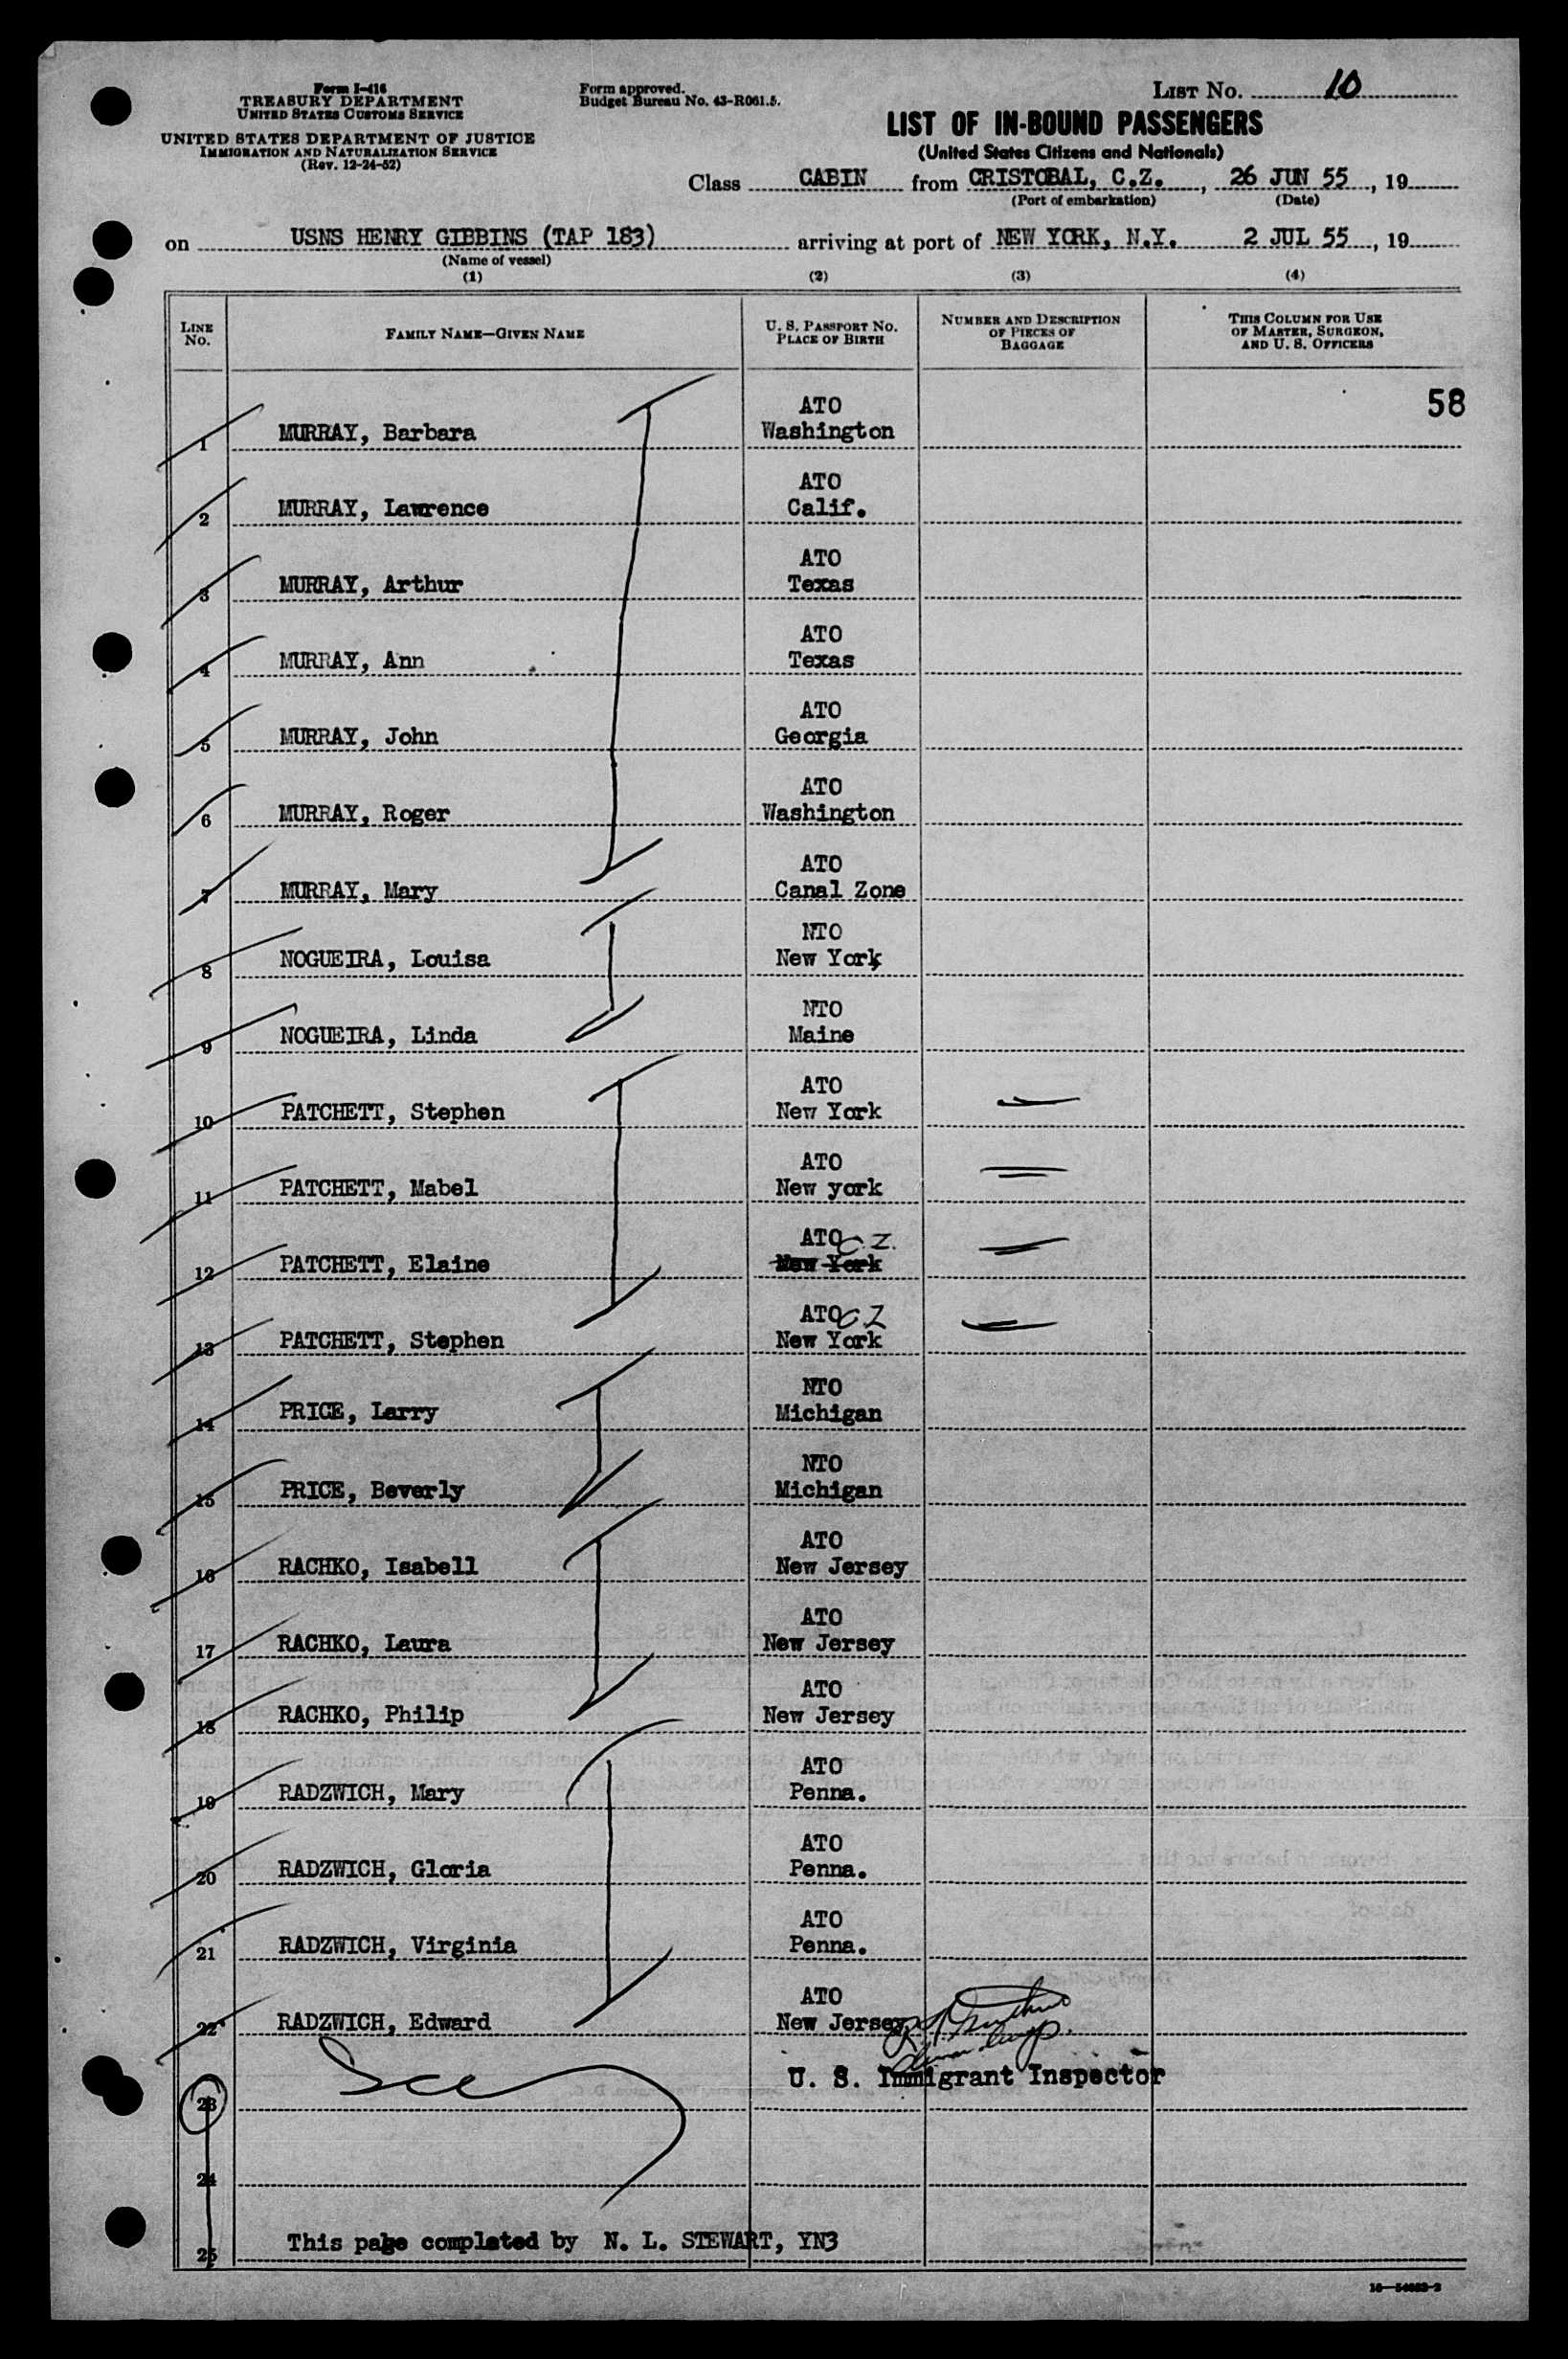 Form I-416
TREASURY DEPARTMENT
UNITED STATES CUSTOMS SERVICE
UNITED STATES DEPARTMENT OF JUSTICE
IMMIGRATION AND NATURALIZATION SERVICE
(Rev. 12-24-52)
Form approved.
Budget Bureau No. 43-R061.5.
LIST NO. 10
LIST OF IN-BOUND PASSENGERS
(United States Citizens and Nationals)
Class CABIN from CRISTOBAL, C.Z., 26 JUN 55, 19
(Port of embarkation) (Date)
on USNS HENRY GIBBINS (TAP 183) arriving at port of NEW YORK, N.Y. 2 JUL 55, 19
(Name of vessel)
(1) (2) (3) (4)
LINE NO. FAMILY NAME—GIVEN NAME U. S. PASSPORT NO. PLACE OF BIRTH NUMBER AND DESCRIPTION OF PIECES OF BAGGAGE THIS COLUMN FOR USE OF MASTER, SURGEON, AND U. S. OFFICERS
58
ATO
1 MURRAY, Barbara Washington
ATO
2 MURRAY, Lawrence Calif.
ATO
3 MURRAY, Arthur Texas
ATO
4 MURRAY, Ann Texas
ATO
5 MURRAY, John Georgia
ATO
6 MURRAY, Roger Washington
ATO
7 MURRAY, Mary Canal Zone
NTO
8 NOGUEIRA, Louisa New York
NTO
9 NOGUEIRA, Linda Maine
ATO
10 PATCHETT, Stephen New York
ATO
11 PATCHETT, Mabel New york
ATO C.Z.
12 PATCHETT, Elaine New York
ATO CZ
13 PATCHETT, Stephen New York
NTO
14 PRICE, Larry Michigan
NTO
15 PRICE, Beverly Michigan
ATO
16 RACHKO, Isabell New Jersey
ATO
17 RACHKO, Laura New Jersey
ATO
18 RACHKO, Philip New Jersey
ATO
19 RADZWICH, Mary Penna.
ATO
20 RADZWICH, Gloria Penna.
ATO
21 RADZWICH, Virginia Penna.
ATO
22 RADZWICH, Edward New Jersey
U. S. Immigrant Inspector
23
24
25 This page completed by N. L. STEWART, YN3